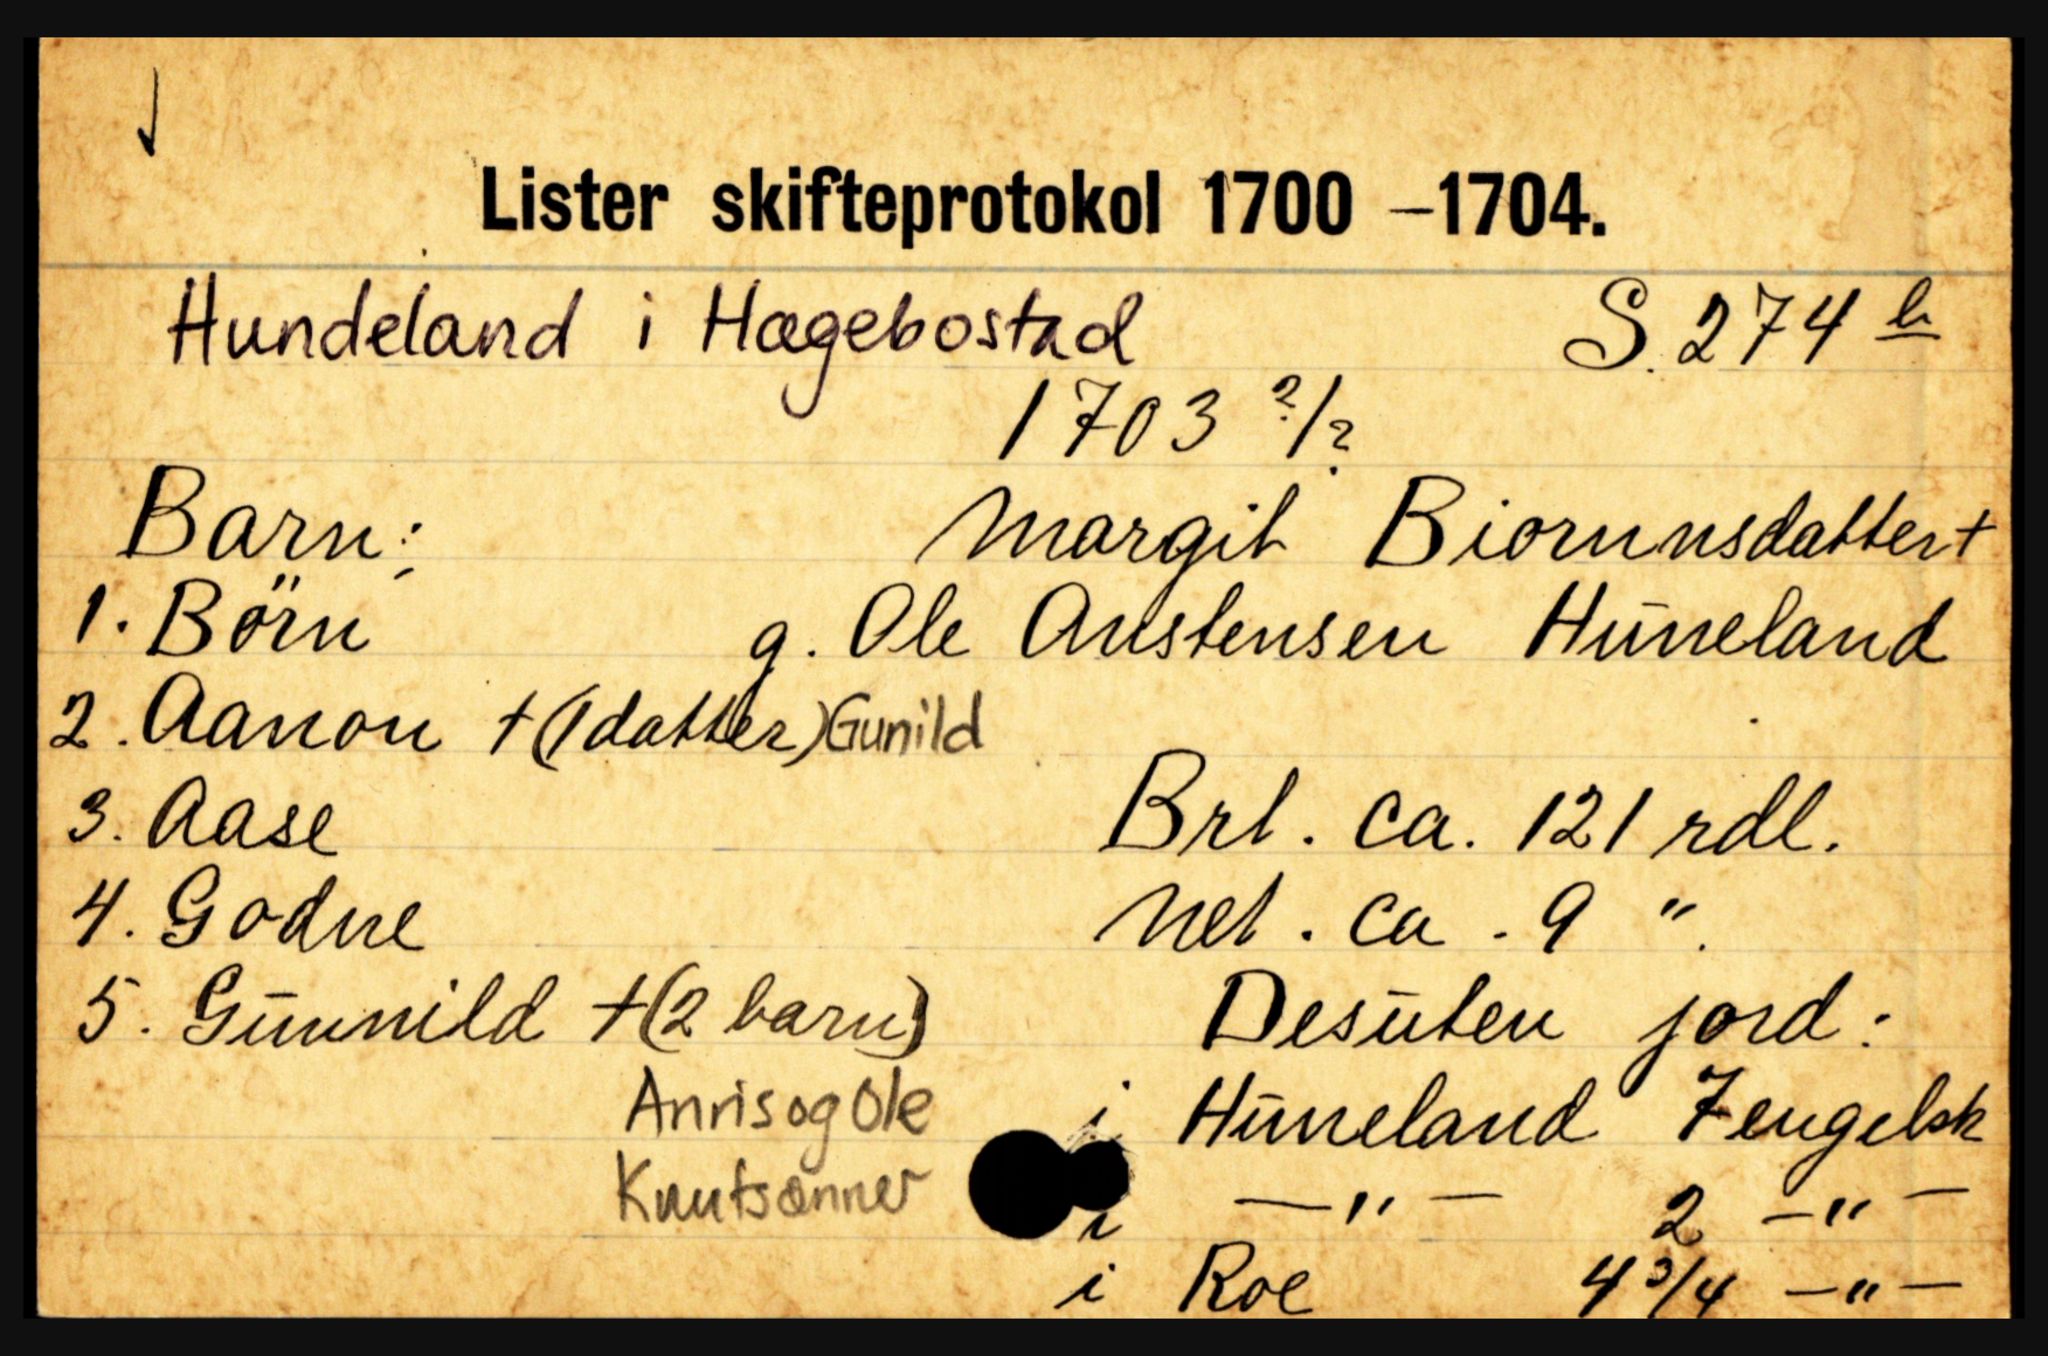 Lister skifteprotokol 1700 –1704.
Hundeland i Hægebostad S. 274 b
1703 ?/?
Barn: Margit Biornnsdatter +
1. Börn g. Ole Anstensen Hūneland
2. Aanon + (1 datter) Gunild
3. Aase Brt. ca. 121 rdl.
4. Godne Net. ca. 9 ".
5. Gūnnild + (2 barn) Desūten jord:
Anris og Ole i Hūneland 7 engelsk
Knutsønner i —"— 2 —"—
i Roe 4 3/4 —"—